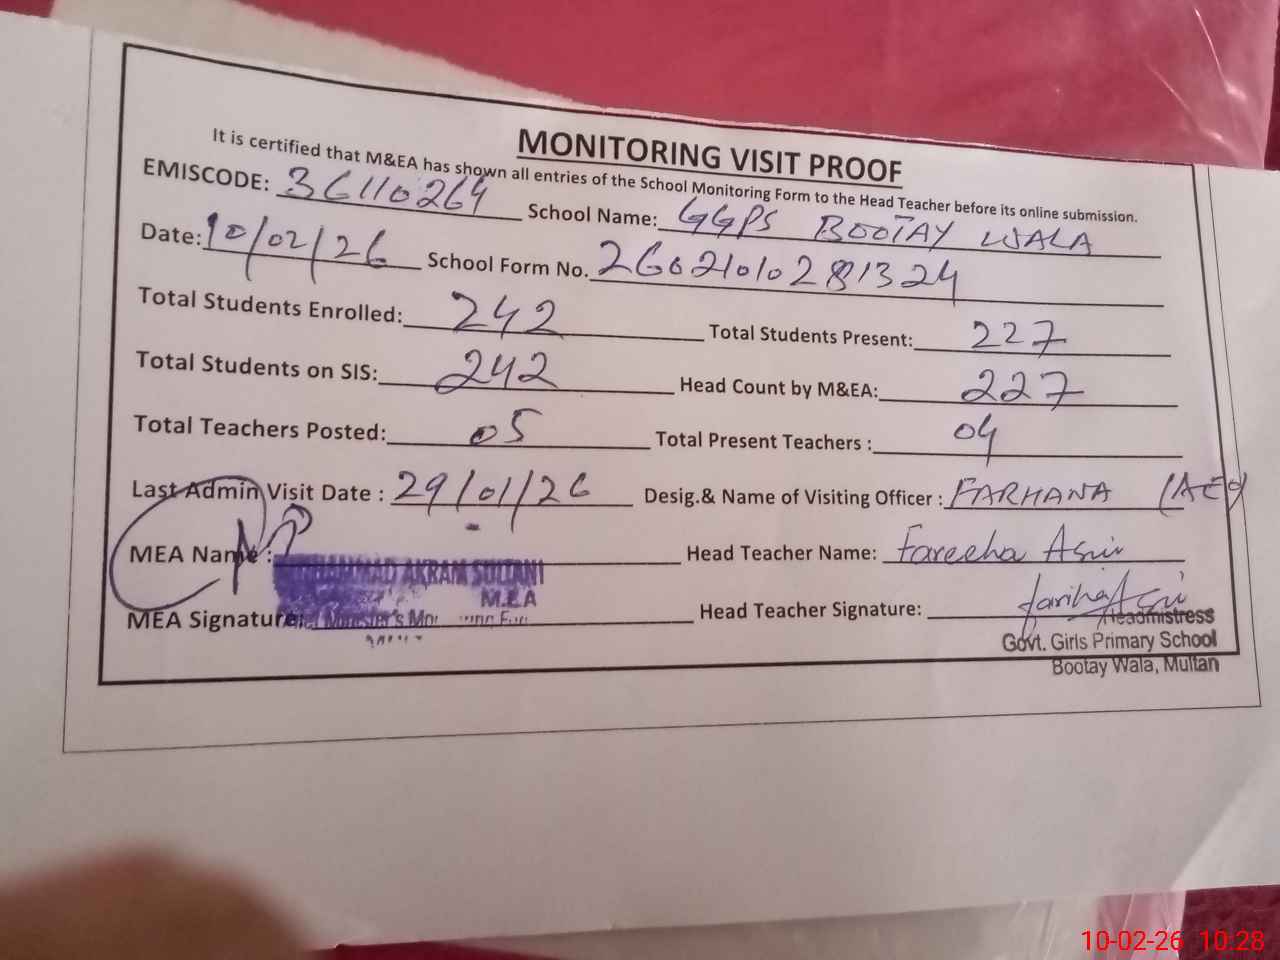 MONITORING VISIT PROOF
It is certified that M&EA has shown all entries of the School Monitoring Form to the Head Teacher before its online submission.
EMISCODE: 36110264 School Name: GGPS BOOTAY WALA
Date: 10/02/26 School Form No. 26021010281324
Total Students Enrolled: 242 Total Students Present: 227
Total Students on SIS: 242 Head Count by M&EA: 227
Total Teachers Posted: 05 Total Present Teachers : 04
Last Admin Visit Date : 29/01/26 Desig.& Name of Visiting Officer : FARHANA (AEO)
MEA Name : Head Teacher Name: Fareeha Asir
MUHAMMAD AKRAM SULTANI
M.E.A
MEA Signature: Head Teacher Signature:
Headmistress
Govt. Girls Primary School
Bootay Wala, Multan
10-02-26 10:28